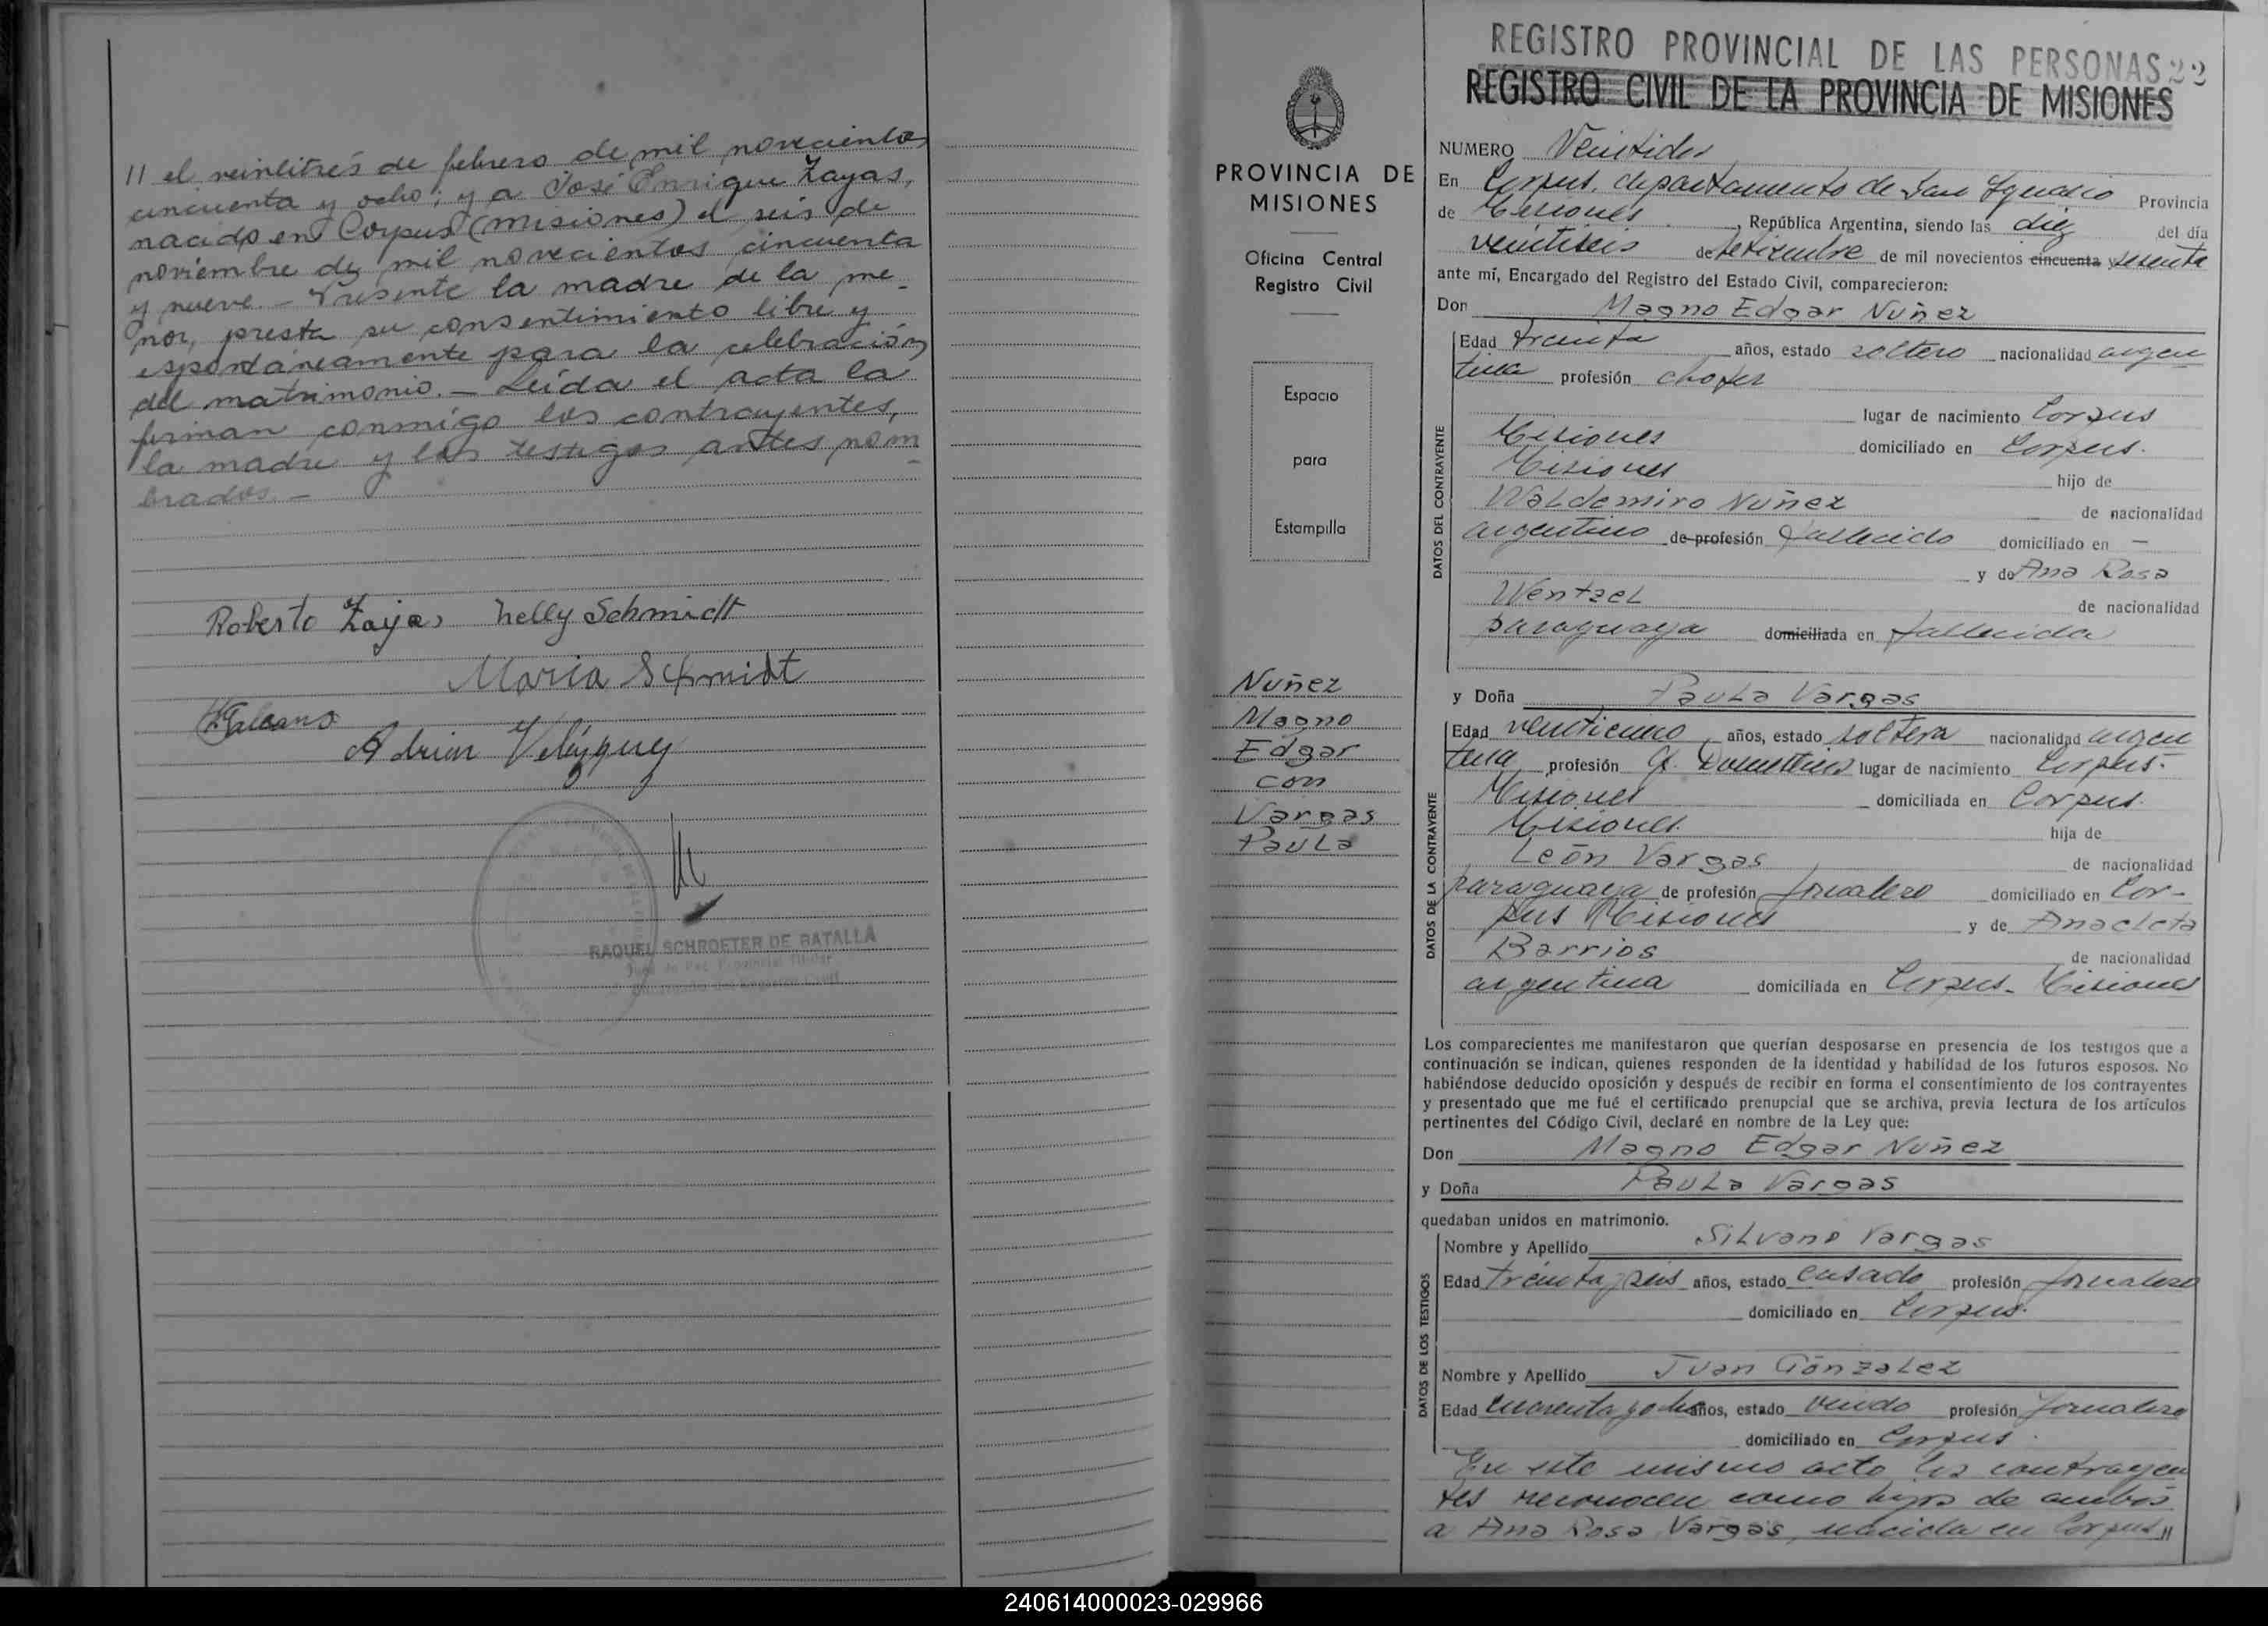 // el veintitrés de febrero de mil novecientos
cincuenta y ocho; y a José Enrique Zayas,
nacido en Corpus (Misiones) el seis de
noviembre de mil novecientos cincuenta
y nueve. - Presente la madre de la me-
nor, presta su consentimiento libre y
espontáneamente para la celebración
del matrimonio. - Leída el acta la
firman conmigo los contrayentes,
la madre y los testigos antes nom
brados. -
Roberto Zayas Nelly Schmidt
María Schmidt
Adrian Velázquez
RAQUEL SCHROETER DE BATALLA
PROVINCIA DE
MISIONES
Oficina Central
Registro Civil
Espacio
para
Estampilla
Nuñez
Magno
Edgar
con
Vargas
Paula
REGISTRO PROVINCIAL DE LAS PERSONAS 22
REGISTRO CIVIL DE LA PROVINCIA DE MISIONES
NUMERO Veintidos
En Corpus, departamento de San Ignacio Provincia
de Misiones, República Argentina, siendo las diez del día
veintiseis de setiembre de mil novecientos cincuenta y sesenta
ante mí, Encargado del Registro del Estado Civil, comparecieron:
Don Magno Edgar Nuñez
DATOS DEL CONTRAYENTE
Edad treinta años, estado soltero nacionalidad argen
tina profesión chofer
lugar de nacimiento Corpus
Misiones domiciliado en Corpus.
Misiones hijo de
Waldemiro Nuñez de nacionalidad
argentino de profesión fallecido domiciliado en —
y de Ana Rosa
Wentzel de nacionalidad
paraguaya domiciliada en fallecida
y Doña Paula Vargas
DATOS DE LA CONTRAYENTE
Edad veinticinco años, estado soltera nacionalidad argen
tina profesión Q. Domésticos lugar de nacimiento Corpus.
Misiones domiciliada en Corpus.
Misiones. hija de
León Vargas de nacionalidad
paraguaya de profesión jornalero domiciliado en Cor-
pus Misiones y de Anacleta
Barrios de nacionalidad
argentina domiciliada en Corpus. Misiones
Los comparecientes me manifestaron que querían desposarse en presencia de los testigos que a
continuación se indican, quienes responden de la identidad y habilidad de los futuros esposos. No
habiéndose deducido oposición y después de recibir en forma el consentimiento de los contrayentes
y presentado que me fué el certificado prenupcial que se archiva, previa lectura de los artículos
pertinentes del Código Civil, declaré en nombre de la Ley que:
Don Magno Edgar Nuñez
y Doña Paula Vargas
quedaban unidos en matrimonio.
DATOS DE LOS TESTIGOS
Nombre y Apellido Silvano Vargas
Edad treinta y seis años, estado casado profesión jornalero
domiciliado en Corpus.
Nombre y Apellido Juan Gónzalez
Edad cuarenta y ocho años, estado viudo profesión jornalero
domiciliado en Corpus.
En este mismo acto los contrayen
tes reconocen como hijos de ambos
a Ana Rosa Vargas, nacida en Corpus //
240614000023-029966